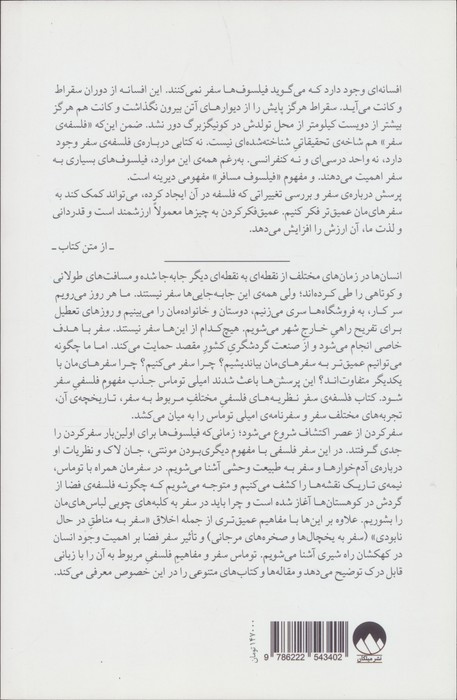 افسانه‌ای وجود دارد که می‌گوید فیلسوف‌ها سفر نمی‌کنند. این افسانه از دوران سقراط
و کانت می‌آید. سقراط هرگز پایش را از دیوارهای آتن بیرون نگذاشت و کانت هم هرگز
بیشتر از دویست کیلومتر از محل تولدش در کونیگزبرگ دور نشد. ضمن این‌که «فلسفه‌ی
سفر» هم شاخه‌ی تحقیقاتی شناخته‌شده‌ای نیست. نه کتابی درباره‌ی فلسفه‌ی سفر وجود
دارد، نه واحد درسی‌ای و نه کنفرانسی. به‌رغم همه‌ی این موارد، فیلسوف‌های بسیاری به
سفر اهمیت می‌دهند، و مفهوم «فیلسوف مسافر» مفهومی دیرینه است.
پرسش درباره‌ی سفر و بررسی تغییراتی که فلسفه در آن ایجاد کرده، می‌تواند کمک کند به
سفرهای‌مان عمیق‌تر فکر کنیم. عمیق‌فکرکردن به چیزها معمولاً ارزشمند است و قدردانی
و لذت ما، آن ارزش را افزایش می‌دهد.
ـ از متن کتاب ـ
انسان‌ها در زمان‌های مختلف از نقطه‌ای به نقطه‌ای دیگر جابه‌جا شده و مسافت‌های طولانی
و کوتاهی را طی کرده‌اند؛ ولی همه‌ی این جابه‌جایی‌ها سفر نیستند. ما هر روز می‌رویم
سر کار، به فروشگاه‌ها سری می‌زنیم، دوستان و خانواده‌مان را می‌بینیم و روزهای تعطیل
برای تفریح راهی خارج شهر می‌شویم. هیچ‌کدام از این‌ها سفر نیستند. سفر با هدف
خاصی انجام می‌شود و از صنعت گردشگری کشور مقصد حمایت می‌کند. اما ما چگونه
می‌توانیم عمیق‌تر به سفرهای‌مان بیاندیشیم؟ چرا سفر می‌کنیم؟ چرا سفرهای‌مان با
یکدیگر متفاوت‌اند؟ این پرسش‌ها باعث شدند امیلی توماس جذب مفهوم فلسفی سفر
شود. کتاب فلسفه‌ی سفر نظریه‌های فلسفی مختلف مربوط به سفر، تاریخچه‌ی آن،
تجربه‌های مختلف سفر و سفرنامه‌ی امیلی توماس را به میان می‌کشد.
سفرکردن از عصر اکتشاف شروع می‌شود؛ زمانی‌که فیلسوف‌ها برای اولین‌بار سفرکردن را
جدی گرفتند. در این سفر فلسفی با مفهوم دیگری‌بودن مونتنی، جان لاک و نظریات او
درباره‌ی آدم‌خوارها و سفر به طبیعت وحشی آشنا می‌شویم. در سفرمان همراه با توماس،
نیمه‌ی تاریک نقشه‌ها را کشف می‌کنیم و متوجه می‌شویم که چگونه فلسفه‌ی فضا از
گردش در کوهستان‌ها آغاز شده است و چرا باید در سفر به کلبه‌های چوبی لباس‌های‌مان
را بشوریم. علاوه بر این‌ها با مفاهیم عمیق‌تری از جمله اخلاق «سفر به مناطق در حال
نابودی» (سفر به یخچال‌ها و صخره‌های مرجانی) و تأثیر سفر فضا بر اهمیت وجود انسان
در کهکشان راه شیری آشنا می‌شویم. توماس سفر و مفاهیم فلسفی مربوط به آن را با زبانی
قابل درک توضیح می‌دهد و مقاله‌ها و کتاب‌های متنوعی را در این خصوص معرفی می‌کند.
۱۴۷۰۰۰ تومان
9 786222 543402
نشر میلکان